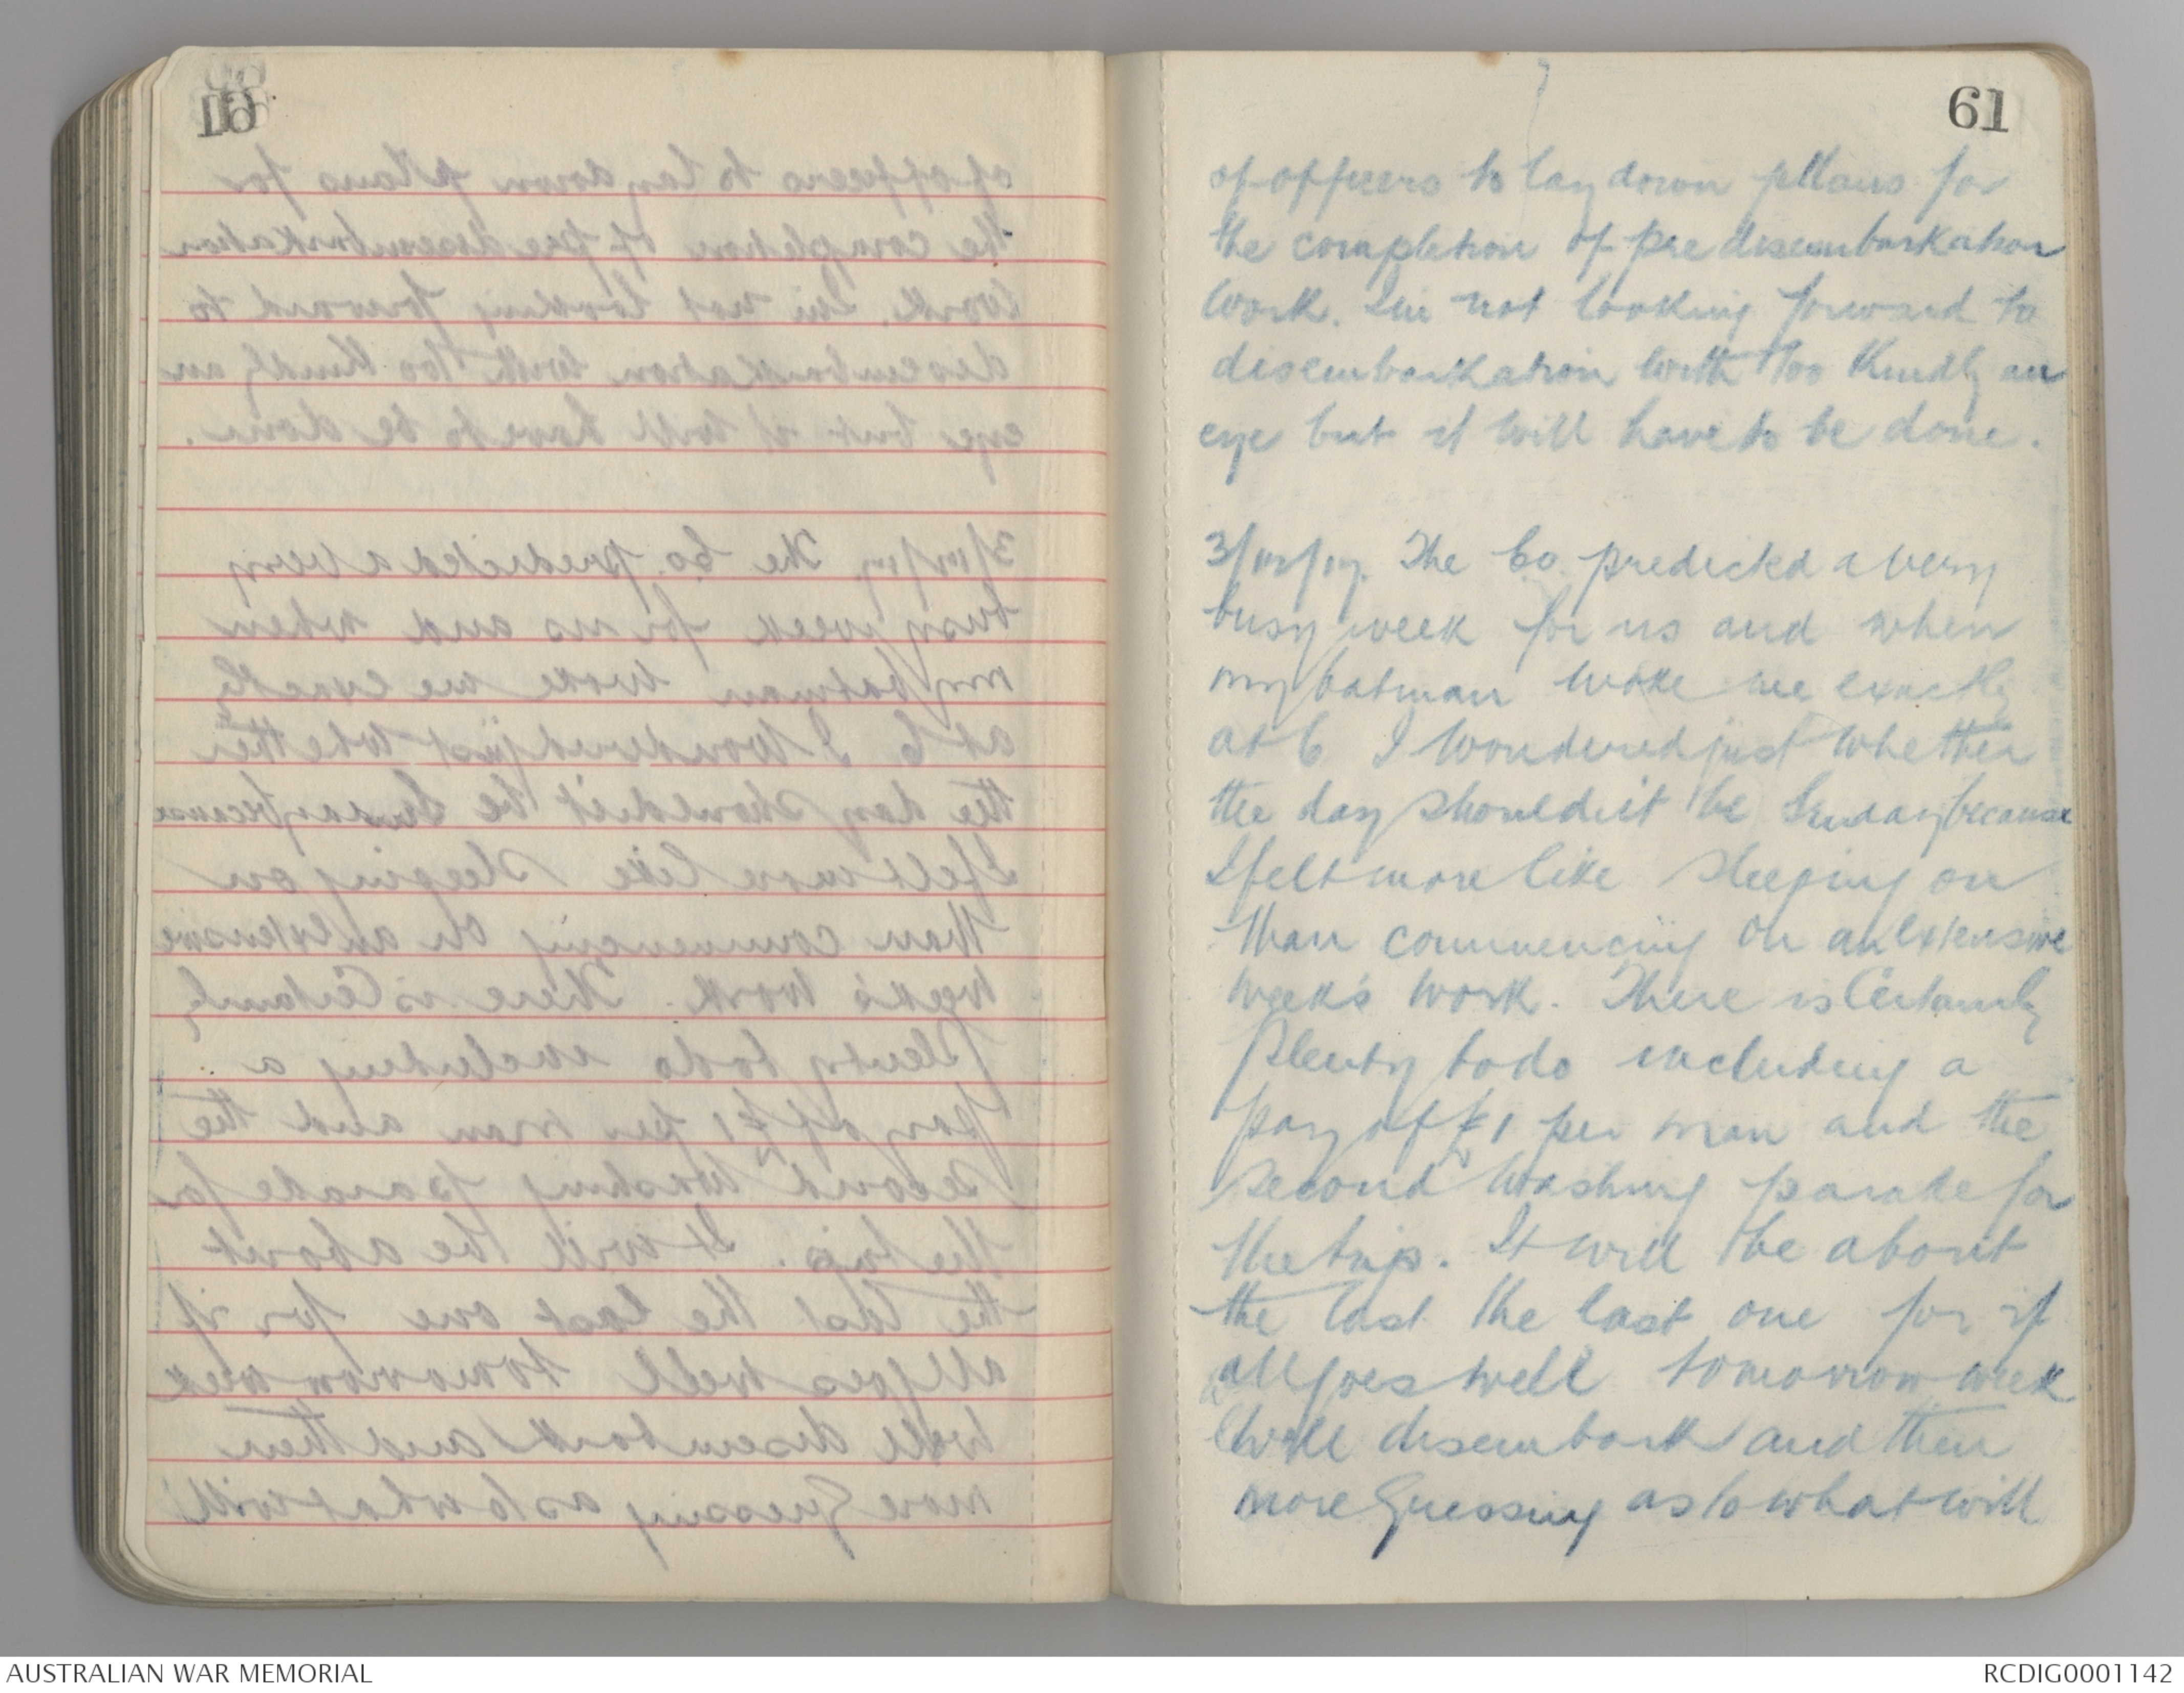 61
of officers to lay down pllans for
the completion of pre disembarkation
work. I'm not looking forward to
disembarkation with too kindly an
eye but it will have to be done.
3/12/17. The Co. predicted a very
busy week for us and when
my batman woke me exactly
at 6 I wondered just whether
the day shouldn't be Sunday because
I felt more like sleeping on
than commencing on an extensive
week's work. There is Certainly
plenty to do including a
pay of £1 per man and the
second washing parade for
the trip. It will be about
the last the last one for if
all goes well tomorrow week
will disembark and then
more Guessing as to what will
AUSTRALIAN WAR MEMORIAL
RCDIG0001142